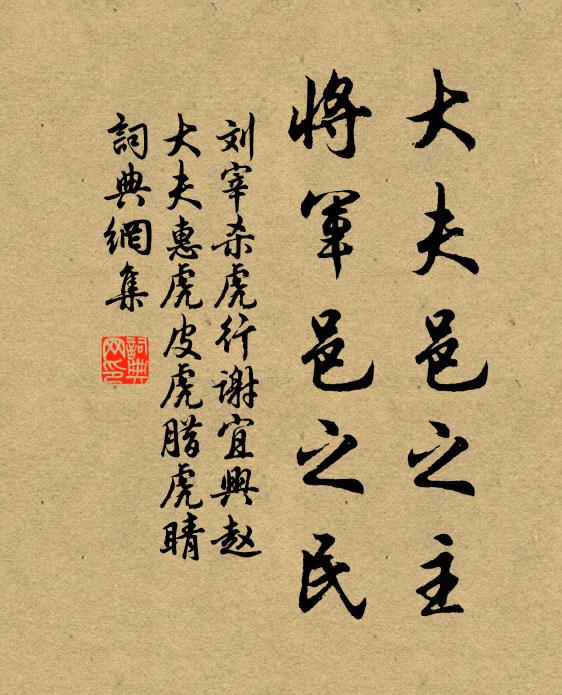 大夫邑之主
將軍邑之民
刘宰杀虎行谢宜興赵
大夫惠虎皮虎腊虎睛
詞典網集
詞典
网印